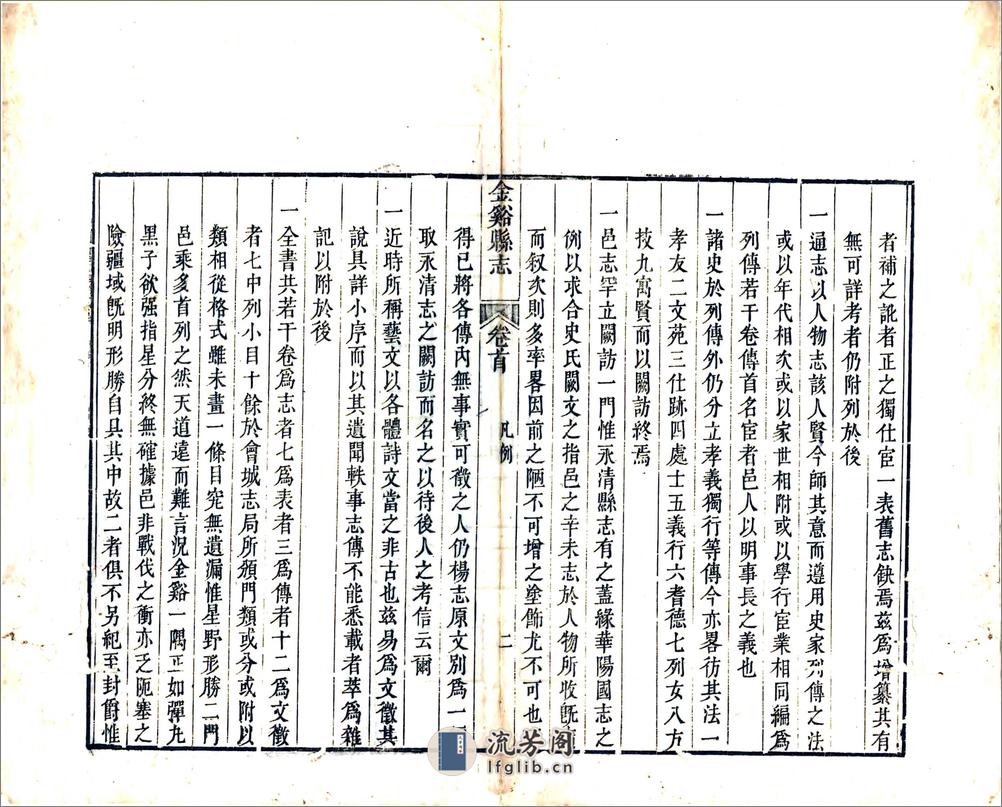 者補之訛者正之獨仕宦一表舊志缺焉兹爲增纂其有
無可詳考者仍附列於後
一通志以人物志該人賢今師其意而遵用史家列傳之法
或以年代相次或以家世相附或以學行宦業相同編爲
列傳若干卷傳首名宦者邑人以明事長之義也
一諸史於列傳外仍分立孝義獨行等傳今亦畧彷其法一
孝友二文苑三仕跡四處士五義行六耆德七列女八方
技九寓賢而以闕訪終焉
一邑志罕立闕訪一門惟永清縣志有之蓋緣華陽國志之
例以求合史氏闕文之指邑之辛未志於人物所收旣
而叙次則多率畧因前之陋不可增之塗飾尤不可也
金谿縣志 卷首 凡例 二
得已將各傳内無事實可徵之人仍楊志原文別爲一
取永清志之闕訪而名之以待後人之考信云爾
一近時所稱藝文以各體詩文當之非古也兹易爲文徵其
說具詳小序而以其遺聞軼事志傳不能悉載者萃爲雜
記以附於後
一全書共若干卷爲志者七爲表者三爲傳者十二爲文徵
者七中列小目十餘於會城志局所頒門類或分或附以
類相從格式雖未畫一條目究無遺漏惟星野形勝二門
邑乘多首列之然天道遠而難言況金谿一隅正如彈丸
黑子欲强指星分終無確據邑非戰伐之衝亦乏阨塞之
險疆域旣明形勝自具其中故二者俱不另紀至封爵惟
流芳阁
lfglib.cn